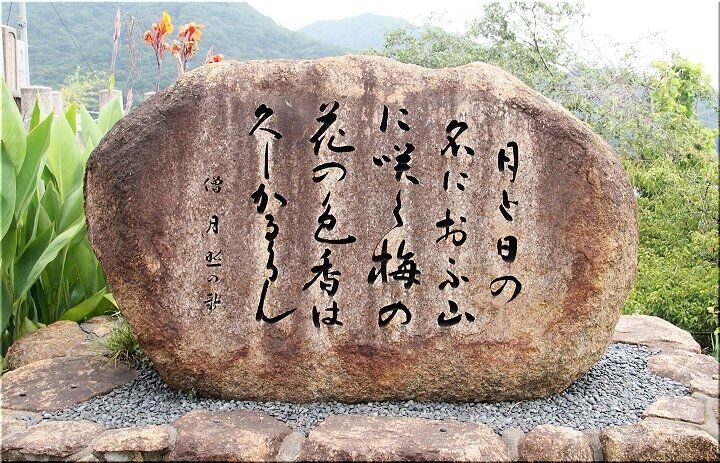 月と日の
名におふ山
に咲く梅の
花の色香は
久しかるらん
僧月照の歌